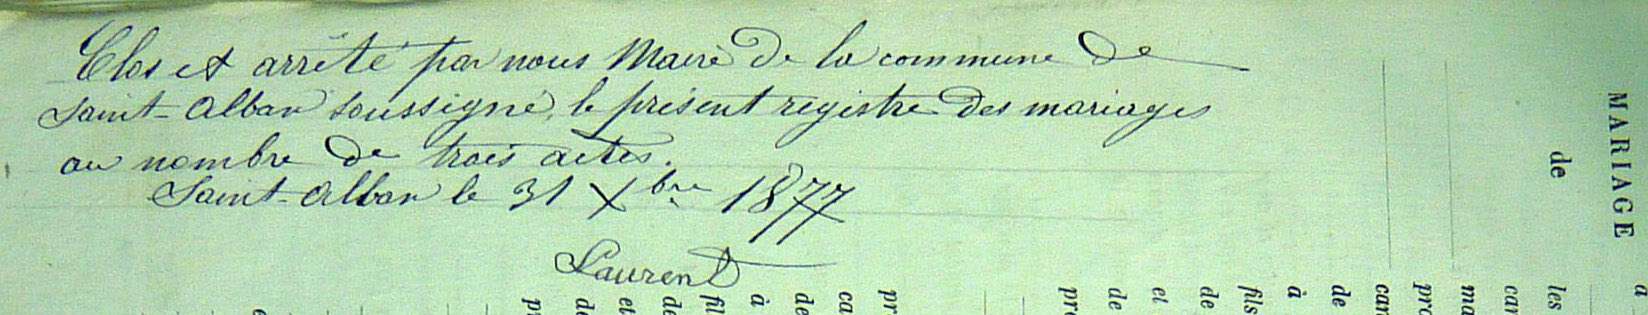 Clos et arrêté par nous Maire de la commune de
Saint-Alban soussigné, le présent registre des mariages
au nombre de trois actes.
Saint-Alban le 31 Xbre 1877
Laurent
MARIAGE
de
a
les
can
ma
pro
can
de
à
fils
de
et
de
pr
ca
de
à
fil
de
et
de
pr